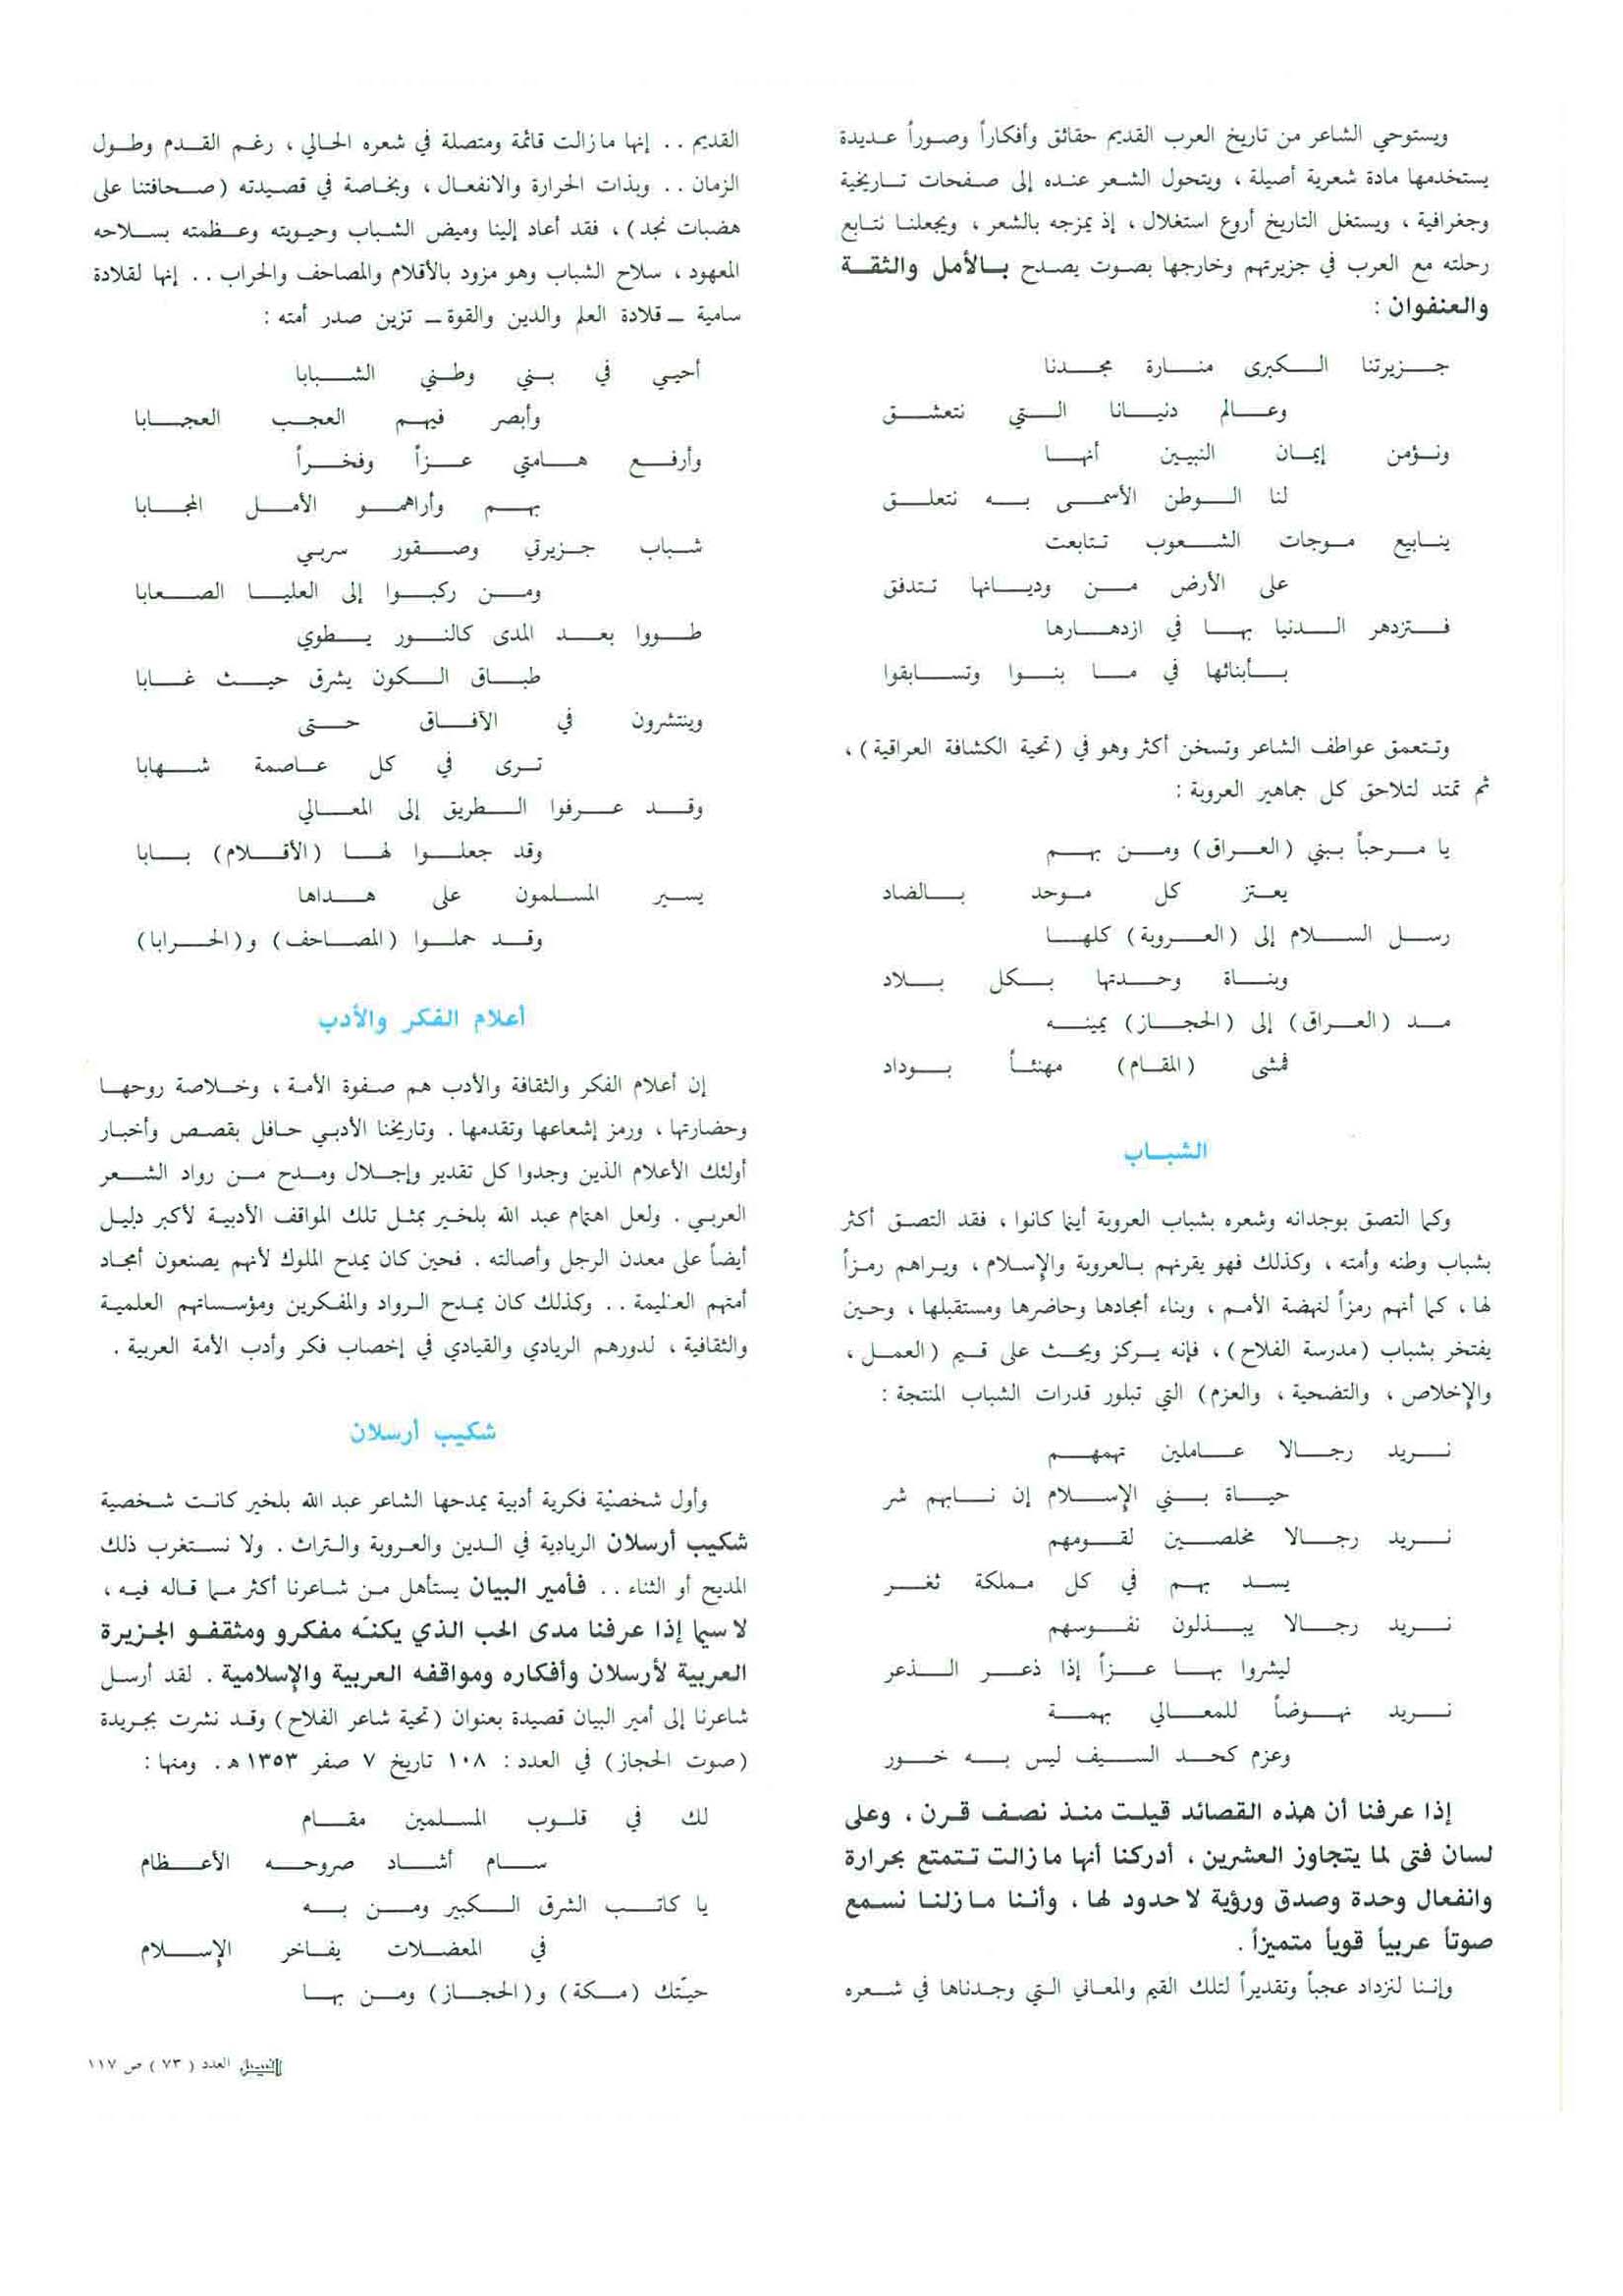 ويستوحي الشاعر من تاريخ العرب القديم حقائق وأفكاراً وصوراً عديدة
يستخدمها مادة شعرية أصيلة ، ويتحول الشعر عنده إلى صفحات تاريخية
وجغرافية ، ويستغل التاريخ أروع استغلال ، إذ يمزجه بالشعر ، ويجعلنا نتابع
رحلته مع العرب في جزيرتهم وخارجها بصوت يصدح بالأمل والثقة
والعنفوان :
جزيرتنا الكبرى منارة مجدنا
وعالم دنيانا التي نتعشق
ونؤمن إيمان النبيين أنها
لنا الوطن الأسمى به نتعلق
ينابيع موجات الشعوب تتابعت
على الأرض من وديانها تتدفق
فتزدهر الدنيا بها في ازدهارها
بأبنائها في ما بنوا وتسابقوا
وتتعمق عواطف الشاعر وتسخن أكثر وهو في (تحية الكشافة العراقية) ،
ثم تمتد لتلاحق كل جماهير العروبة :
يا مرحباً ببني (العراق) ومن بهم
يعتز كل موحد بالضاد
رسل السلام إلى (العروبة) كلها
وبناة وحدتها بكل بلاد
مد (العراق) إلى (الحجاز) يمينه
فمشى (المقام) مهنئاً بوداد
الشباب
وكما التصق بوجدانه وشعره بشباب العروبة أينما كانوا ، فقد التصق أكثر
بشباب وطنه وأمته ، وكذلك فهو يقرنهم بالعروبة والإسلام ، ويراهم رمزاً
لها ، كما أنهم رمزاً لنهضة الأمم ، وبناء أمجادها وحاضرها ومستقبلها ، وحين
يفتخر بشباب (مدرسة الفلاح) ، فإنه يركز ويحث على قيم (العمل ،
والإخلاص ، والتضحية ، والعزم) التي تبلور قدرات الشباب المنتجة :
نريد رجالا عاملين تهمهم
حياة بني الإسلام إن نابهم شر
نريد رجالا مخلصين لقومهم
يسد بهم في كل مملكة ثغر
نريد رجالا يبذلون نفوسهم
ليشروا بها عزاً إذا ذعر الذعر
نريد نهوضاً للمعالي بهمة
وعزم كحد السيف ليس به خور
إذا عرفنا أن هذه القصائد قيلت منذ نصف قرن ، وعلى
لسان فتى لما يتجاوز العشرين ، أدركنا أنها مازالت تتمتع بحرارة
وانفعال وحدة وصدق ورؤية لا حدود لها ، وأننا مازلنا نسمع
صوتاً عربياً قوياً متميزاً .
وإننا لنزداد عجباً وتقديراً لتلك القيم والمعاني التي وجدناها في شعره
القديم .. إنها مازالت قائمة ومتصلة في شعره الحالي ، رغم القدم وطول
الزمان .. وبذات الحرارة والانفعال ، وبخاصة في قصيدته (صحافتنا على
هضبات نجد) ، فقد أعاد إلينا وميض الشباب وحيويته وعظمته بسلاحه
المعهود ، سلاح الشباب وهو مزود بالأقلام والمصاحف والحراب .. إنها لقلادة
سامية ــ قلادة العلم والدين والقوة ــ تزين صدر أمته :
أحيي في بني وطني الشبابا
وأبصر فيهم العجب العجابا
وأرفع هامتي عزاً وفخراً
بهم وأراهمو الأمل المجابا
شباب جزيرتي وصقور سربي
ومن ركبوا إلى العليا الصعابا
طووا بعد المدى كالنور يطوي
طباق الكون يشرق حيث غابا
وينتشرون في الآفاق حتى
ترى في كل عاصمة شهابا
وقد عرفوا الطريق إلى المعالي
وقد جعلوا لها (الأقلام) بابا
يسير المسلمون على هداها
وقد حملوا (المصاحف) و(الحرابا)
أعلام الفكر والأدب
إن أعلام الفكر والثقافة والأدب هم صفوة الأمة ، وخلاصة روحها
وحضارتها ، ورمز إشعاعها وتقدمها . وتاريخنا الأدبي حافل بقصص وأخبار
أولئك الأعلام الذين وجدوا كل تقدير وإجلال ومدح من رواد الشعر
العربي . ولعل اهتمام عبد الله بلخير بمثل تلك المواقف الأدبية لأكبر دليل
أيضاً على معدن الرجل وأصالته . فحين كان يمدح الملوك لأنهم يصنعون أمجاد
أمتهم العظيمة .. وكذلك كان يمدح الرواد والمفكرين ومؤسساتهم العلمية
والثقافية ، لدورهم الريادي والقيادي في إخصاب فكر وأدب الأمة العربية .
شكيب أرسلان
وأول شخصية فكرية أدبية يمدحها الشاعر عبد الله بلخير كانت شخصية
شكيب أرسلان الريادية في الدين والعروبة والتراث . ولا نستغرب ذلك
المديح أو الثناء .. فأمير البيان يستأهل من شاعرنا أكثر مما قاله فيه ،
لاسيما إذا عرفنا مدى الحب الذي يكنّه مفكرو ومثقفو الجزيرة
العربية لأرسلان وأفكاره ومواقفه العربية والإسلامية . لقد أرسل
شاعرنا إلى أمير البيان قصيدة بعنوان (تحية شاعر الفلاح) وقد نشرت بجريدة
(صوت الحجاز) في العدد : ١٠٨ تاريخ ٧ صفر ١٣٥٣ هـ . ومنها :
لك في قلوب المسلمين مقام
سام أشاد صروحه الأعظام
يا كاتب الشرق الكبير ومن به
في المعضلات يفاخر الإسلام
حيّتك (مكة) و(الحجاز) ومن بها
الفيصل العدد (٧٣) ص ١١٧